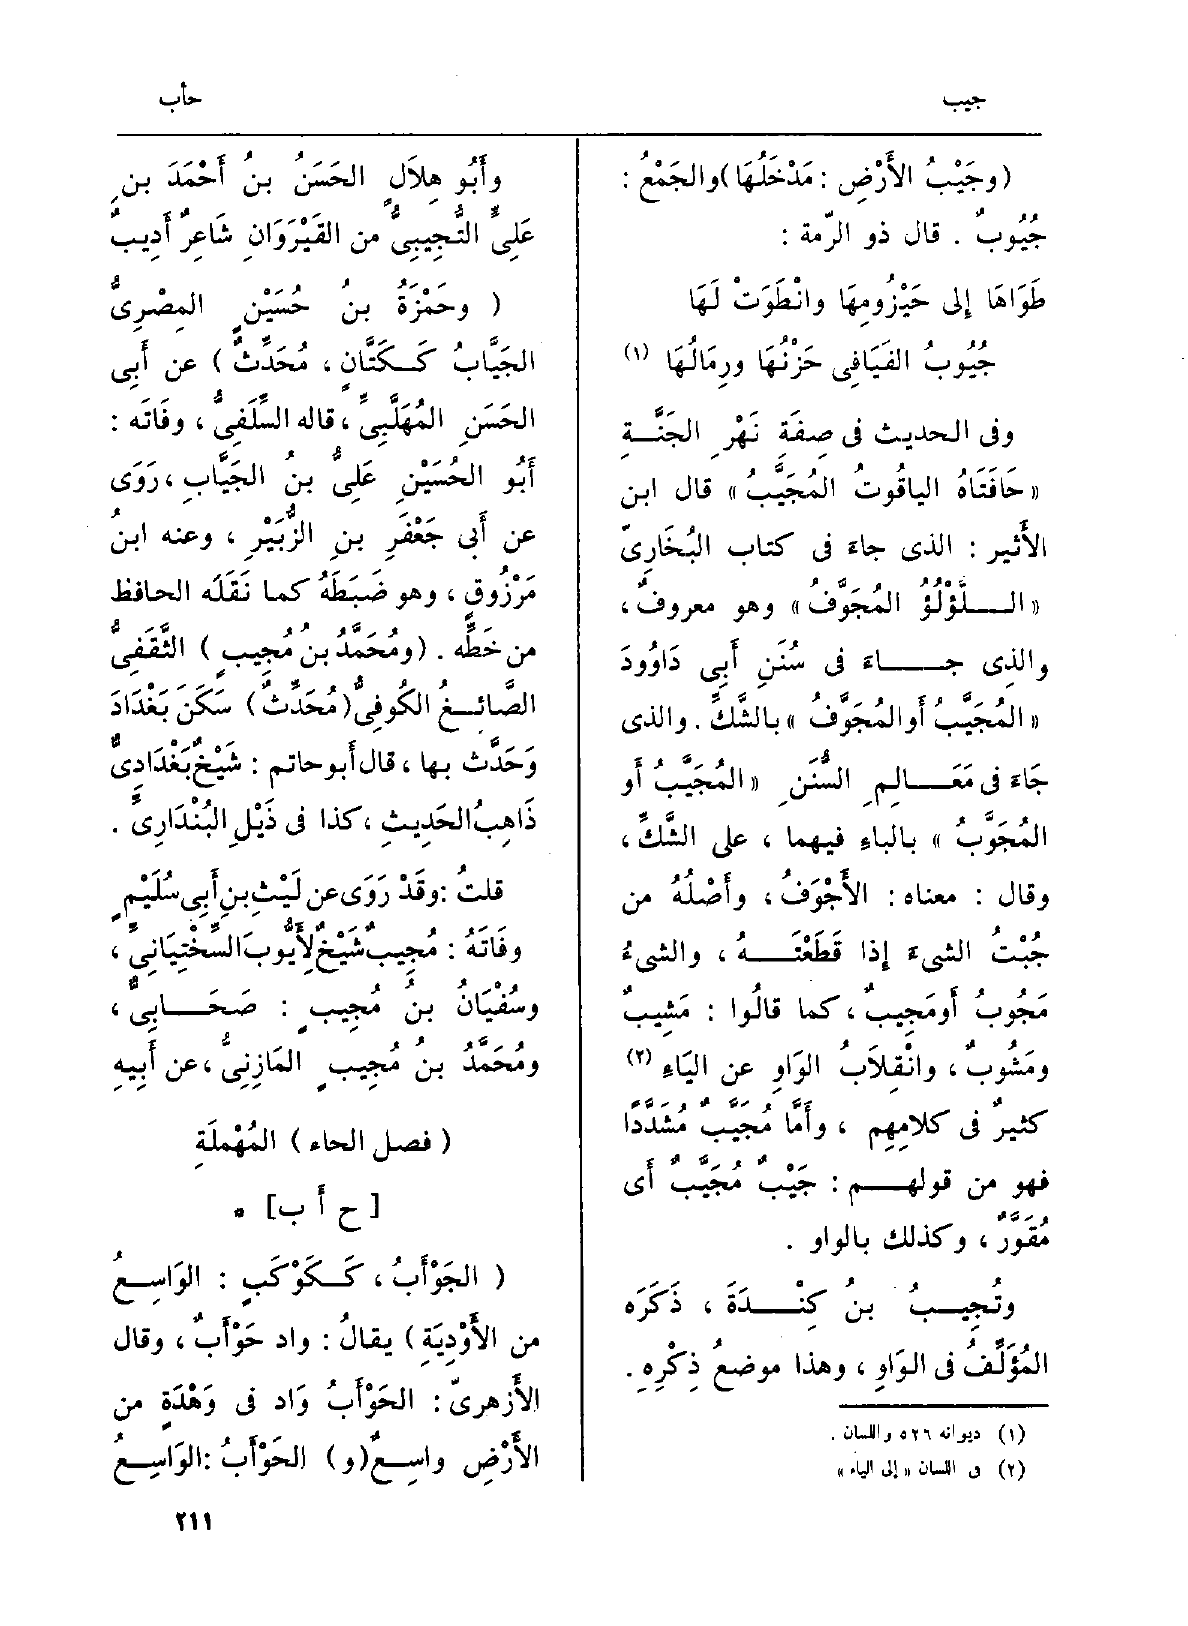 جيب
حأب
(وجَيْبُ الأَرْضِ : مَدْخَلُهَا) والجَمْعُ :
جُيُوبٌ . قال ذو الرّمة :
طَوَاهَا إلى حَيْزُومِهَا وانْطَوَتْ لَهَا
جُيُوبُ الفَيَافِى حَزْنُهَا ورِمَالُهَا (١)
وفى الحديث فى صِفَةِ نَهْرِ الجَنَّةِ
«حَافَتَاهُ الياقُوتُ المُجَيَّبُ» قال ابن
الأَثير : الذى جاءَ فى كتاب البُخَارِىّ
«اللُّؤْلُؤُ المُجَوَّفُ» وهو معروفٌ،
والذِى جَاءَ فى سُنَنِ أَبِى دَاوُودَ
«المُجَيَّبُ أَو المُجَوَّفُ» بالشَّكِّ . والذى
جَاءَ فى مَعَالِمِ السُّنَنِ «المُجَيَّبُ أَو
المُجَوَّبُ» بالباءِ فيهما ، على الشَّكِّ ،
وقال : معناه : الأَجْوَفُ ، وأَصْلُهُ من
جُبْتُ الشىءَ إذا قَطَعْتَهُ ، والشىءُ
مَجُوبٌ أَو مَجِيبٌ ، كما قالُوا : مَشِيبٌ
ومَشُوبٌ ، وانْقِلاَبُ الوَاوِ عن اليَاءِ (٢)
كثيرٌ فى كلامِهِم ، وأَمَّا مُجَيَّبٌ مُشَدَّدًا
فهو من قولهم : جَيْبٌ مُجَيَّبٌ أَى
مُقَوَّرٌ ، وكذلك بالواو .
وتُجِيبُ بنُ كِنْدَةَ ، ذَكَرَه
المُؤَلِّفُ فى الوَاوِ ، وهذا موضعُ ذِكْرِهِ .
(١) ديوانه ٥٢٦ واللسان .
(٢) فى اللسان «إلى الياء»
وأَبُو هِلاَلٍ الحَسَنُ بنُ أَحْمَدَ بنِ
عَلِىٍّ التُّجِيبِىُّ من القَيْرَوَانِ شَاعِرٌ أَدِيبٌ
( وحَمْزَةُ بنُ حُسَيْنٍ المِصْرِىُّ
الجَيَّابُ كَكَتَّانٍ ، مُحَدِّثٌ ) عن أَبِى
الحَسَنِ المُهَلَّبِىِّ ، قاله السِّلَفِىُّ ، وفَاتَه :
أَبُو الحُسَيْنِ عَلِىُّ بنُ الجَيَّابِ ، رَوَى
عن أَبى جَعْفَرِ بنِ الزُّبَيْرِ ، وعنه ابنُ
مَرْزُوقٍ ، وهو ضَبَطَهُ كما نَقَلَه الحافظ
من خَطِّه . (ومُحَمَّدُ بنُ مُجِيبٍ ) الثَّقَفِىُّ
الصَّائِغُ الكُوفِىُّ (مُحَدِّثٌ) سَكَنَ بَغْدَادَ
وَحَدَّث بها ، قال أَبو حاتم : شَيْخٌ بَغْدَادِىٌّ
ذَاهِبُ الحَدِيثِ ، كذا فى ذَيْلِ البُنْدَارِىِّ .
قلتُ : وقَدْ رَوَى عن لَيْثِ بنِ أَبِى سُلَيْمٍ
وفَاتَهُ : مُجِيبٌ شَيْخٌ لِأَيُّوبَ السِّخْتِيَانِىِّ ،
وسُفْيَانُ بنُ مُجِيبٍ : صَحَابِىٌّ ،
ومُحَمَّدُ بنُ مُجِيبٍ المَازِنِىُّ ، عن أَبِيهِ
( فصل الحاء ) المُهْمَلَةِ
[ح أ ب] *
( الحَوْأَبُ ، كَكَوْكَبٍ : الوَاسِعُ
من الأَوْدِيَةِ ) يقالُ : واد حَوْأَبٌ ، وقال
الأَزهرىّ : الحَوْأَبُ وَاد فى وَهْدَةٍ من
الأَرْضِ واسِعٌ (و) الحَوْأَبُ : الوَاسِعُ
٢١١